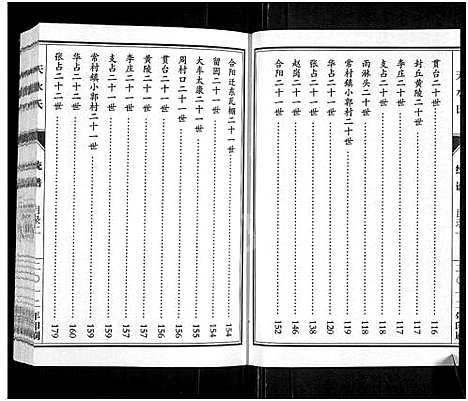 贯台二十世 116
封丘黄陵二十世 117
李庄二十世 117
支占二十世 118
雨淋头二十世 118
常村镇小郭村二十世 119
华占二十世 120
张占二十世 138
赵岗二十世 146
合阳二十世 152
合阳迁东瓦厢二十一世 154
留固二十一世 154
大车太康二十一世 155
周村口二十一世 156
贯台二十一世 156
黄陵二十一世 157
李庄二十一世 157
支占二十一世 159
常村镇小郭村二十一世 159
华占二十二世 160
张占二十二世 179
天水氏 续谱 目录二 二〇一二年印制